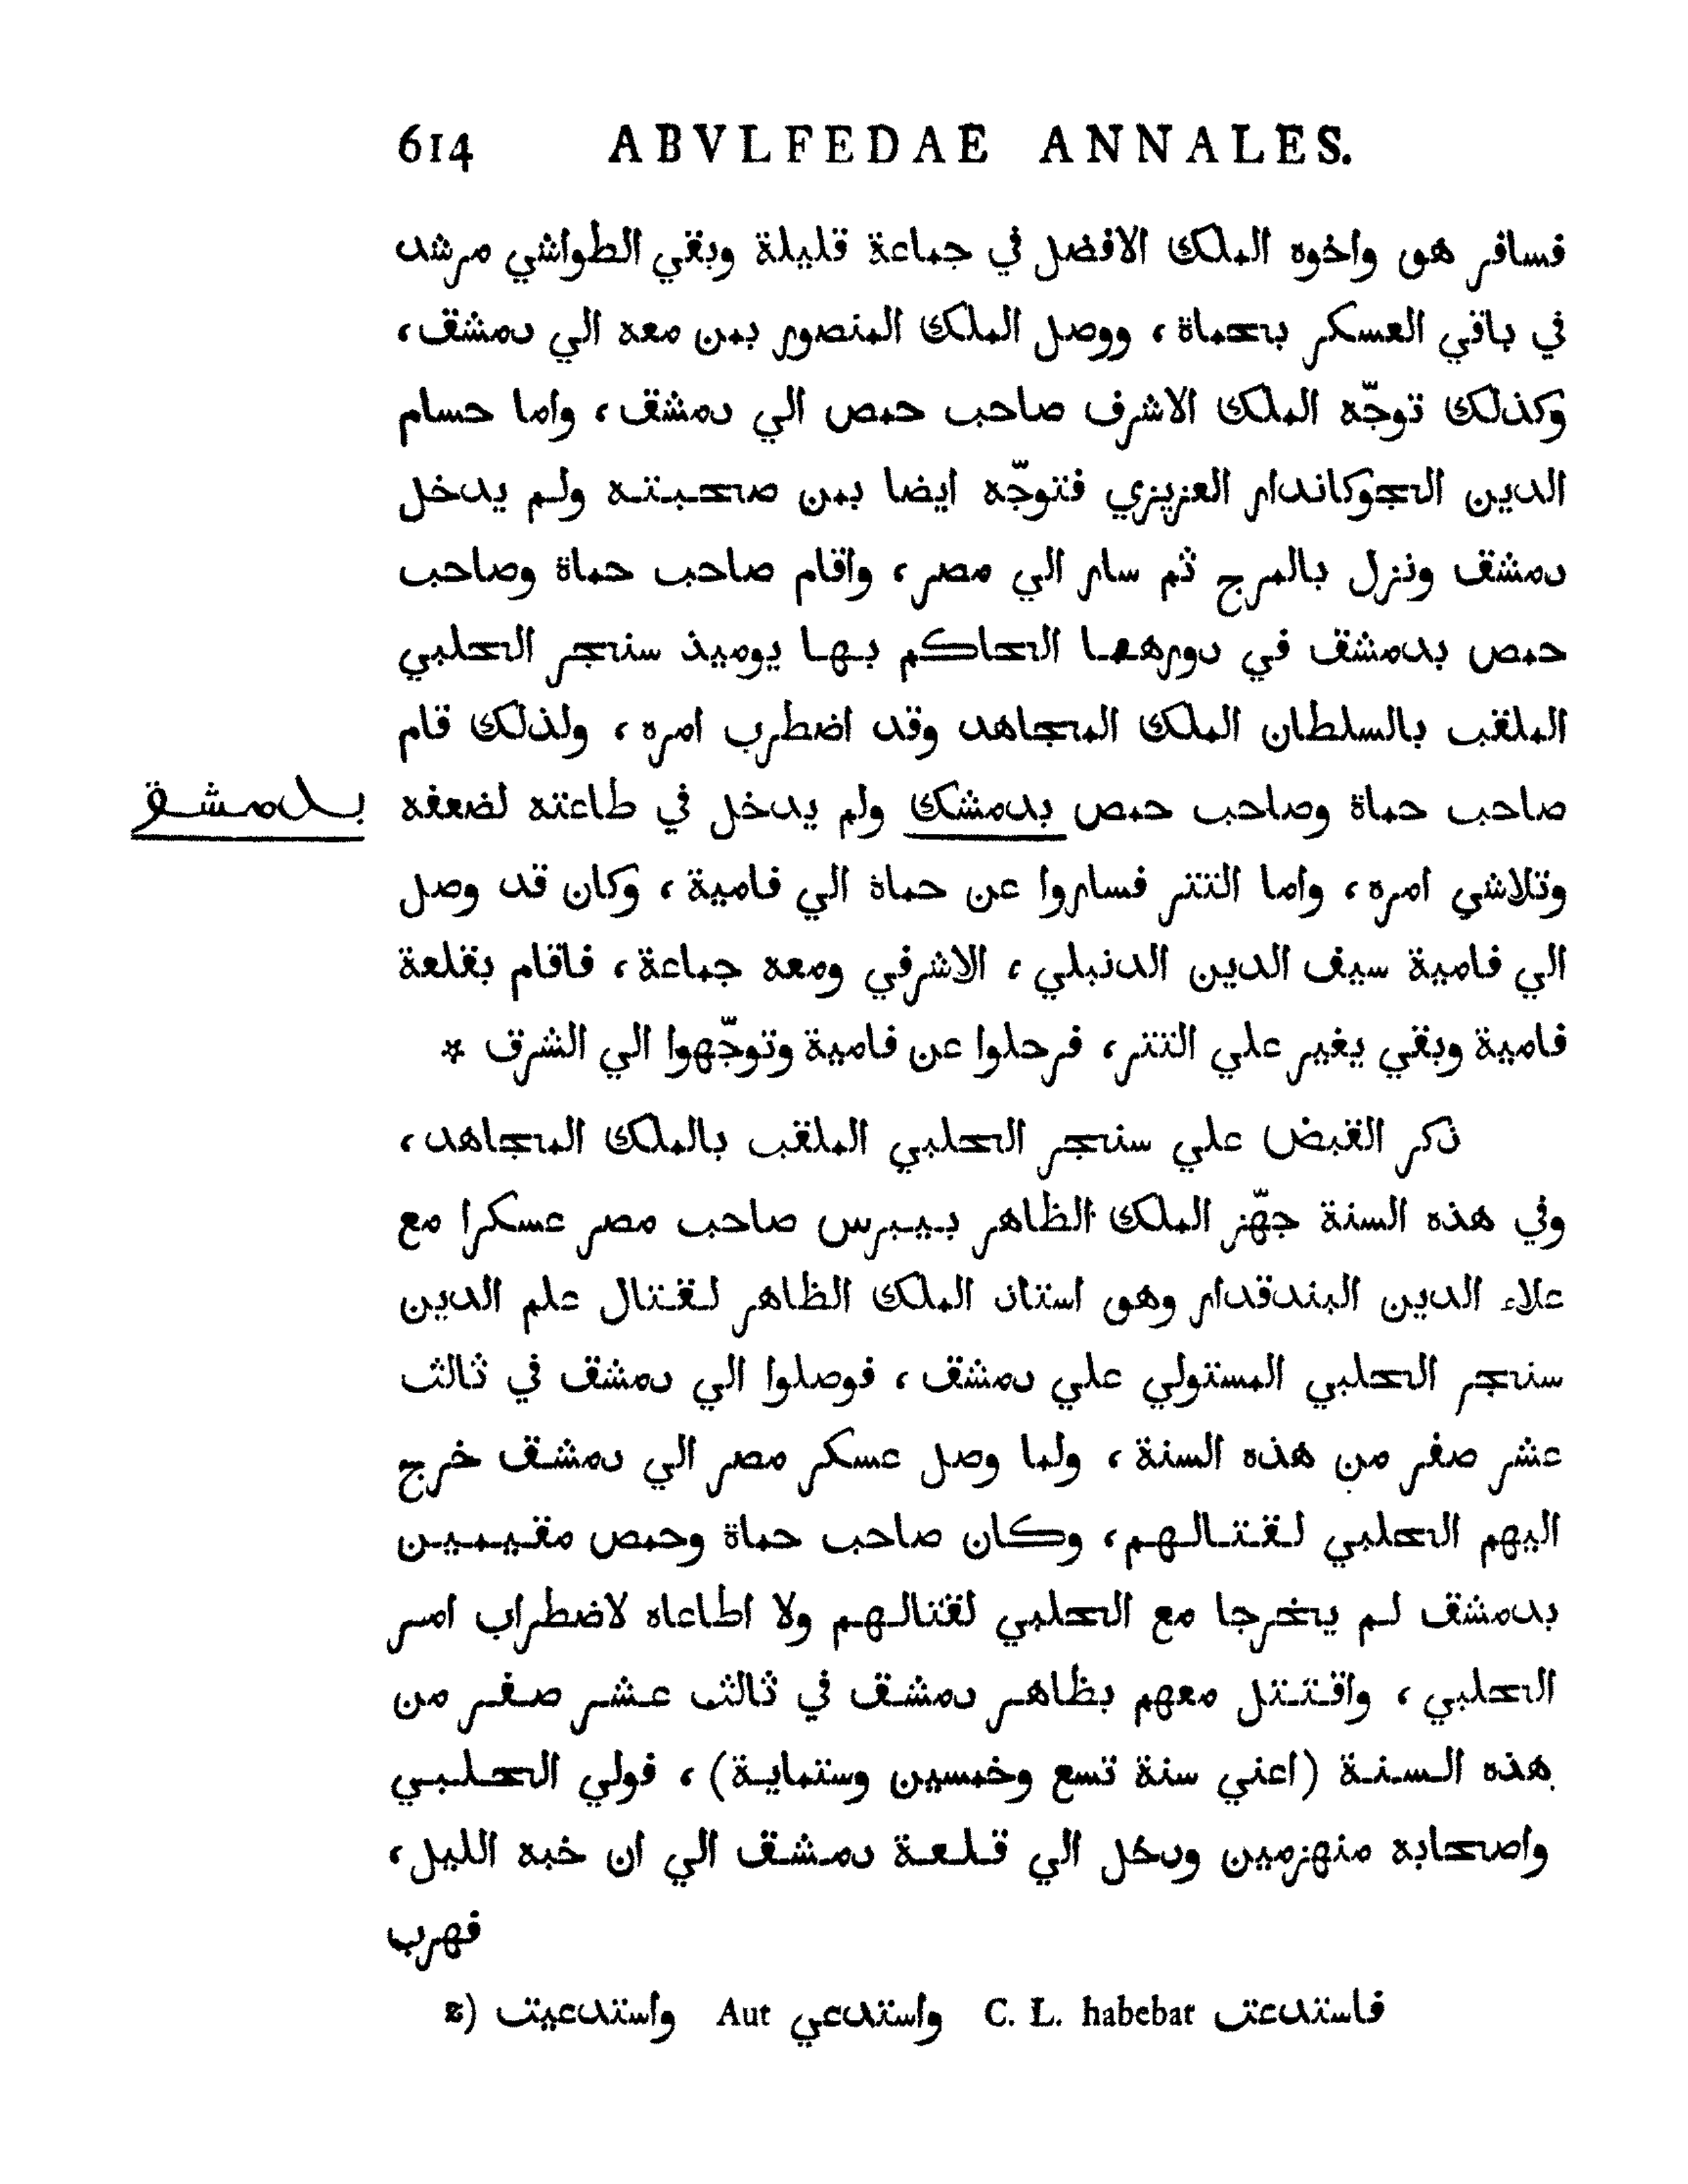 614 ABVLFEDAE ANNALES.
فسافر هو واخوه الملك الافضل في جماعة قليلة وبقي الطواشي مرشد
في باقي العسكر بحماة ، ووصل الملك المنصور بمن معه الي دمشق ،
وكذلك توجّه الملك الاشرف صاحب حمص الي دمشق ، واما حسام
الدين الجوكاندار العزيزي فتوجّه ايضا بمن صحبته ولم يدخل
دمشق ونزل بالمرج ثم سار الي مصر ، واقام صاحب حماة وصاحب
حمص بدمشق في دورهما الحاكم بها يوميذ سنجر الحلبي
الملقب بالسلطان الملك المجاهد وقد اضطرب امره ، ولذلك قام
صاحب حماة وصاحب حمص بدمشك ولم يدخل في طاعته لضعفه
بدمشق
وتلاشي امره ، واما التتر فساروا عن حماة الي فامية ، وكان قد وصل
الي فامية سيف الدين الدنبلي ، الاشرفي ومعه جماعة ، فاقام بقلعة
فامية وبقي يغير علي التتر ، فرحلوا عن فامية وتوجّهوا الي الشرق *
ذكر القبض علي سنجر الحلبي الملقب بالملك المجاهد ،
وفي هذه السنة جهّز الملك الظاهر بيبرس صاحب مصر عسكرا مع
علاء الدين البندقدار وهو استاذ الملك الظاهر لقتال علم الدين
سنجر الحلبي المستولي علي دمشق ، فوصلوا الي دمشق في ثالث
عشر صفر من هذه السنة ، ولما وصل عسكر مصر الي دمشق خرج
اليهم الحلبي لقتالهم ، وكان صاحب حماة وحمص مقيمين
بدمشق لم يخرجا مع الحلبي لقتالهم ولا اطاعاه لاضطراب امر
الحلبي ، واقتتل معهم بظاهر دمشق في ثالث عشر صفر من
هذه السنة (اعني سنة تسع وخمسين وستماية) ، فولي الحلبي
واصحابه منهزمين ودخل الي قلعة دمشق الي ان خبه الليل ،
فهرب
z) واستدعيت Aut واستدعي C. L. habebat فاستدعت